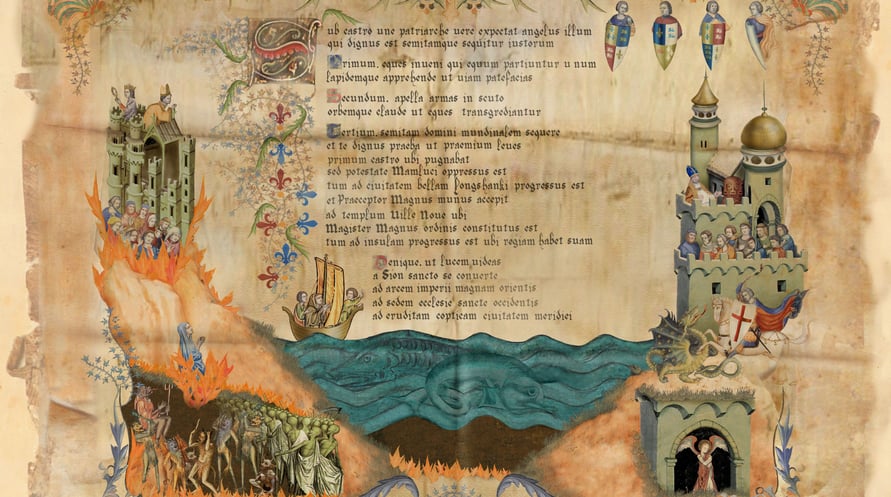 Sub castro une patriarche uere expectat angelus illum
qui dignus est semitamque sequitur iustorum
Primum, eques inueni qui equum partiuntur u num
lapidemque apprehende ut uiam patefacias
Secundum, apella armas in scuto
orbemque claude ut eques transgrediantur
Tertium, semitam domini mundinalem sequere
et te dignus praeba ut praemium leues
primum castro ubi pugnabat
sed potestate Mamluci oppressus est
tum ad ciuitatem bellam Longshanki progressus est
et Praeceptor Magnus munus accepit
ad templum Uille Noue ubi
Magister Magnus ordinis constitutus est
tum ad insulam progressus est ubi regiam habet suam
Denique, ut lucem uideas
a Sion sancto se conuerte
ad arcem imperii magnam orientis
ad sedem ecclesie sancte occidentis
ad eruditam copticam ciuitatem meridiei